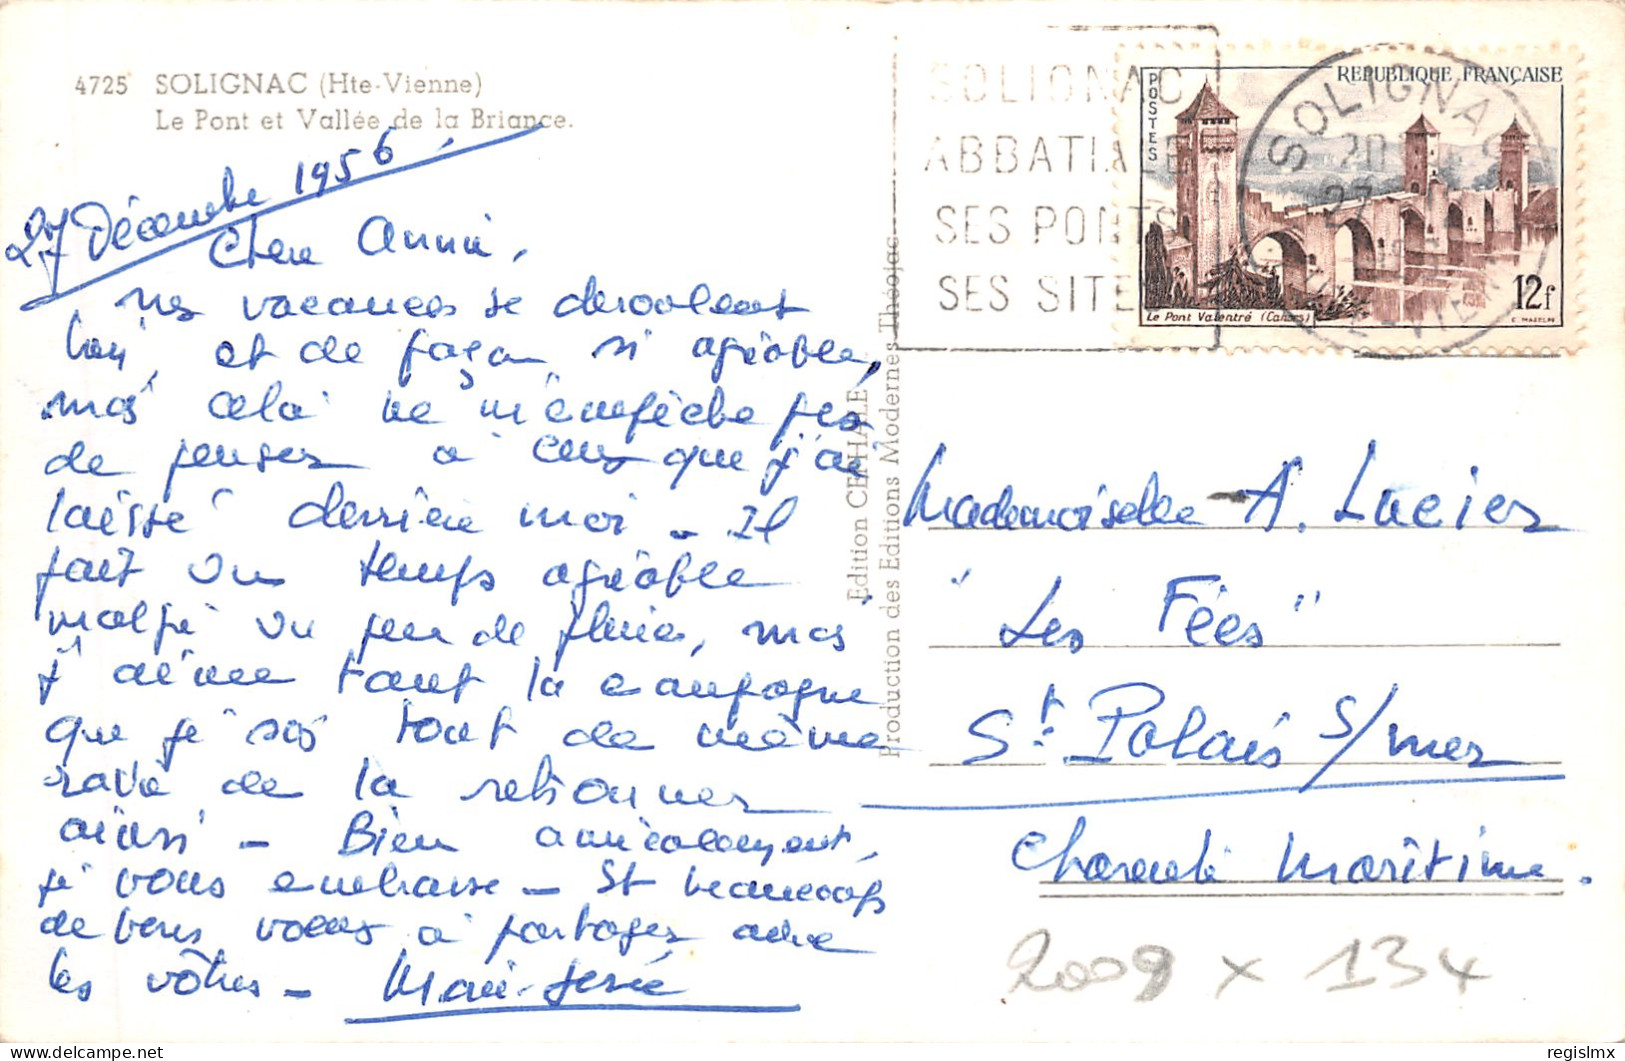 4725 SOLIGNAC (Hte-Vienne)
Le Pont et Vallée de la Briance.
27 Décembre 1956.
Chère Annie,
nes vacances se déroulent
bien, et de façon si agréable,
mais cela ne m'empêche pas
de penser à ceux que j'ai
laissé derrière moi - Il
fait un temps agréable
malgré un peu de pluie, mais
j'aime tant la campagne
que je suis tout de même
ravie de la retrouver
ainsi - Bien amicalement,
je vous embrasse - Et beaucoup
de bons voeux à partager avec
les vôtres - Marie-José
Edition CEPHALE
Production des Editions Modernes Théojac
SOLIGNAC
ABBATIALE
SES PONTS
SES SITE
POSTES
REPUBLIQUE FRANÇAISE
12f
Le Pont Valentré (Cahors)
C. MAZELIN
SOLIGNAC
20
27
Mademoiselle A. Lucier
"Les Fées"
St. Palais s/mer
Charente Maritime.
2009 x 134
delcampe.net
regislmx